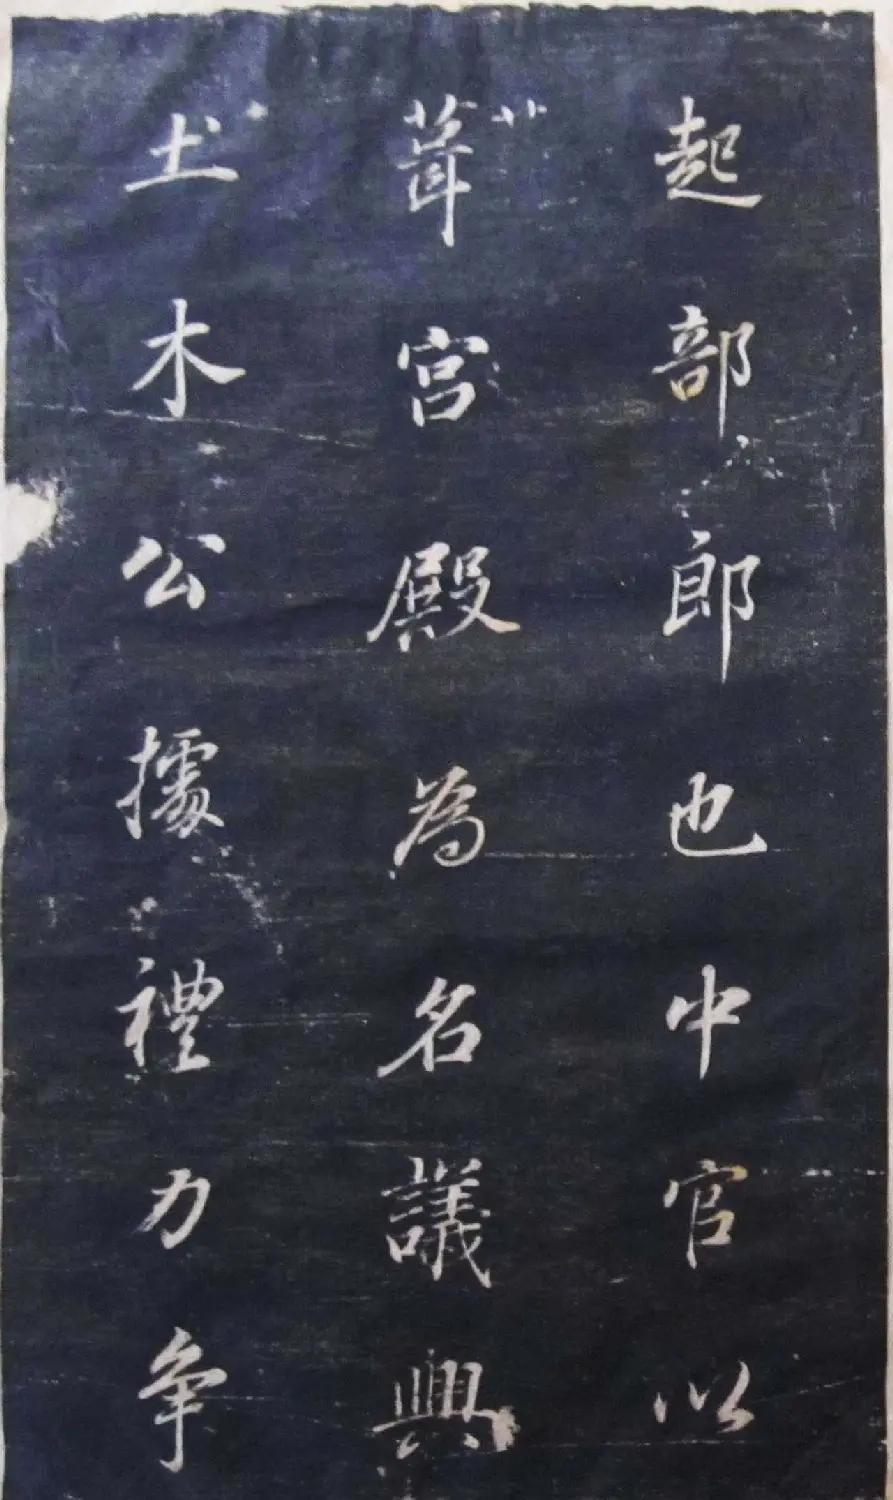 起部郎也中官以
葺宮殿為名議興
土木公據禮力争